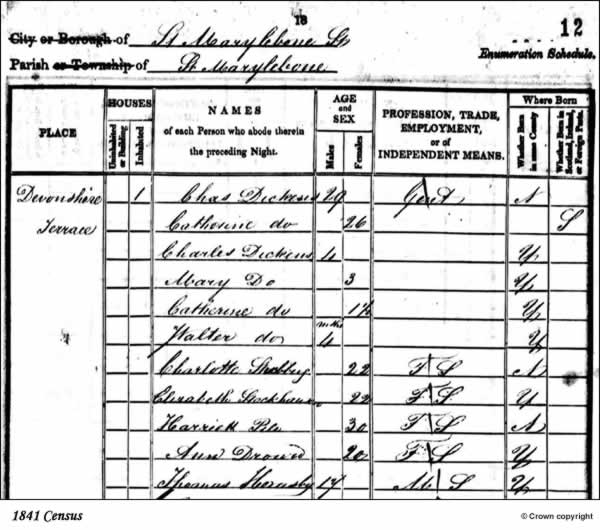 18
12
City or Borough of St Marylebone
Enumeration Schedule.
Parish or Township of St Marylebone
PLACE
HOUSES
Uninhabited or Building
Inhabited
NAMES
of each Person who abode therein
the preceding Night.
AGE
and
SEX
Males
Females
PROFESSION, TRADE,
EMPLOYMENT,
or of
INDEPENDENT MEANS.
Where Born
Whether Born in same County
Whether Born in Scotland, Ireland, or Foreign Parts.
Devonshire 1 Chas Dickens 29 Gent N
Terrace Catherine do 26 S
Charles Dickens 4 Y
Mary Do 3 Y
Catherine do Y
Walter do 4 mths Y
Charlotte 22 F S N
Elizabeth 22 F S Y
Harriett 30 F S N
Ann Brown 20 F S Y
Thomas Hornsby 17 M S Y
1841 Census
© Crown copyright